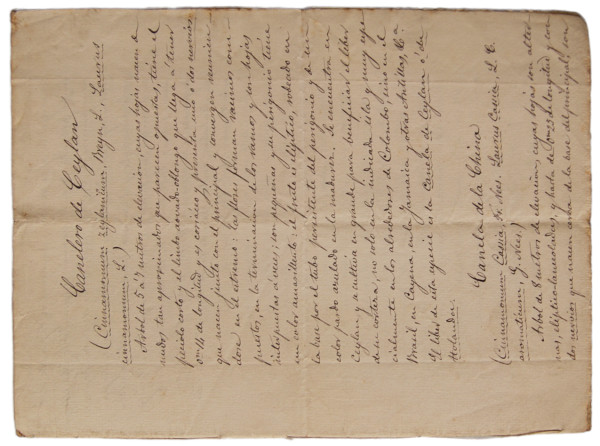 Canelero de Ceylan
(Cinnamomum zeylanicum, Breyn, L., Laurus
cinnamomum, L.)
Arbol de 5 a 7 metros de elevacion, cuyas hojas nacen á
nudos, tan aproximados que parecen opuestas, tiene el
peciolo corto y el limbo aovado-oblongo que llega á tener
0m 16 de longitud y es coriáceo y presenta uno ó dos nervios
que nacen junto con el principal y convergen reunien
dose en su estremo: las flores forman racimos com
puestos, en la terminacion de los ramos y son hojas
interpuestas á veces; son pequeñas y su perigonio tiene
un color amarillento: el fruto es elíptico, rodeado en
la base por el tubo persistente del perigonio y de un
color pardo azulado en la madurez. Se encuentra en
Ceylan y se cultiva en grande para beneficiar el liber
de su corteza, no solo en la indicada isla y muy espe
cialmente en los alrededores de Colombo, sino en el
Brasil, en Cayena, en la Jamaica y otras Antillas, &.a
El liber de esta especie es la canela de Ceylan ó de
Holanda.
Canela de la China
(Cinnamomum Cassia, Fr. Nees. Laurus Cassia, L. C.
aromaticum, G. Nees)
Arbol de 8 metros de elevacion, cuyas hojas son alter
nas, elíptico-lanceoladas, y hasta de longitud y con
dos nervios que nacen cerca de la base del principal, son